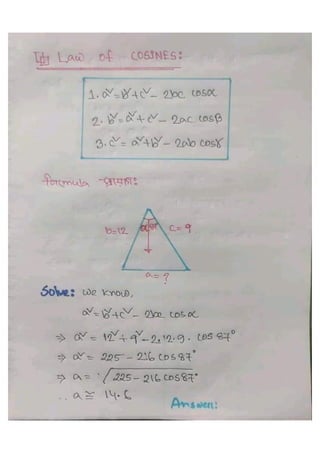 Law of COSINES:
1. a² = b² + c² - 2bc cosα
2. b² = a² + c² - 2ac cosβ
3. c² = a² + b² - 2ab cosγ
formula
b=12 c=9
a=?
Solve: We know,
a² = b² + c² - 2bc cosα
⇒ a² = 12² + 9² - 2.12.9. cos 87°
⇒ a² = 225 - 216 cos 87°
⇒ a = √225 - 216 cos 87°
∴ a ≅ 14.6
Answer: